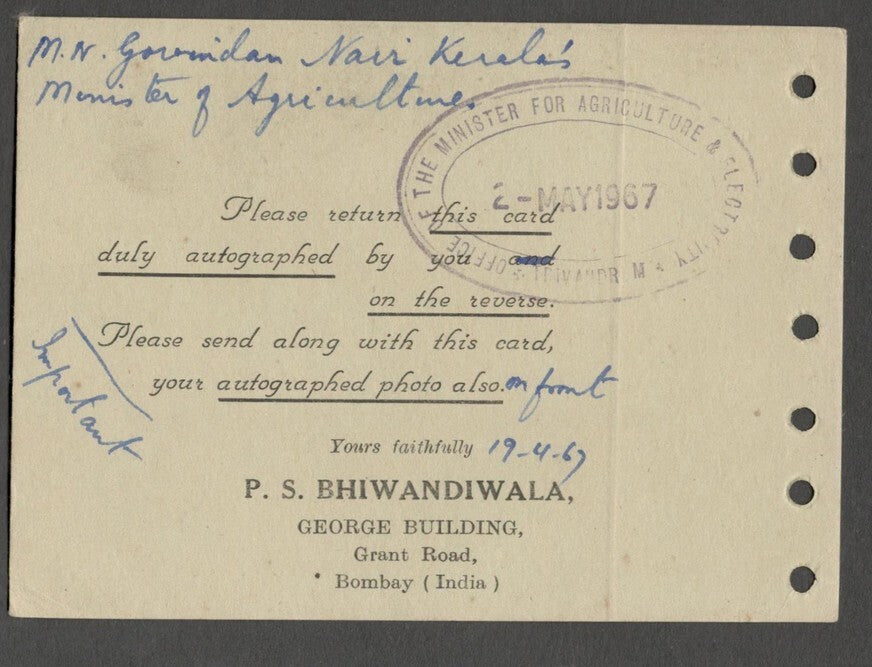 M.N. Govindan Nair Kerala's
Minister of Agricultures
OFFICE OF THE MINISTER FOR AGRICULTURE & ELECTRICITY * TRIVANDRUM *
2-MAY 1967
Please return this card
duly autographed by you and
on the reverse.
Please send along with this card,
your autographed photo also. on front
Important
Yours faithfully 19-4-67
P. S. BHIWANDIWALA,
GEORGE BUILDING,
Grant Road,
Bombay ( India )